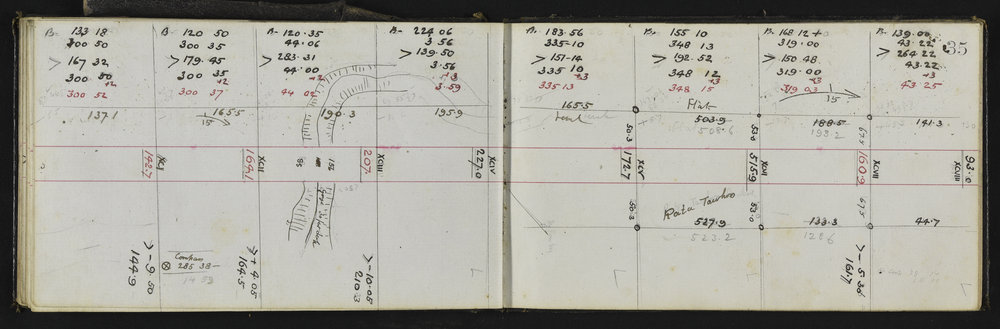 B- 133 18
300 50
> 167 32
300 50
+2
300 52
B- 120 50
300 35
> 179.45
300 35
+2
300 37
B- 120.35
44.06
> 283.31
44.00
+3
44 03
B- 224 06
3 56
> 139.50
3.56
+3
3.59
B. 183.56
335-10
> 151-14
335 10
+3
335 13
B. 155 10
348 13
> 192.52
348 12
+3
348 15
B. 168 12 +
319.00
> 150 48
319.00
+3
319 03
B. 139.00
43.22
> 264.22
43.22
+3
43.25
35
137.1
165.5
15
190.3
195.9
165.5
Flat
503.9
508.6
15
188.5
193.2
141.3
50.3
53.0
67.5
142.7
XCI
164.1
XCII
152
207
XCIII
227.0
XCIV
172.7
XCV
515.9
XCVI
160.9
XCVII
93.0
XCVIII
50.3
53.0
67.5
Rata Tawhero
527.9
523.2
133.3
128.6
44.7
> - 9.50
144.9
285 38
14 53
> + 4.05
164.5
> - 10.05
210.3
> - 5 38
161.7